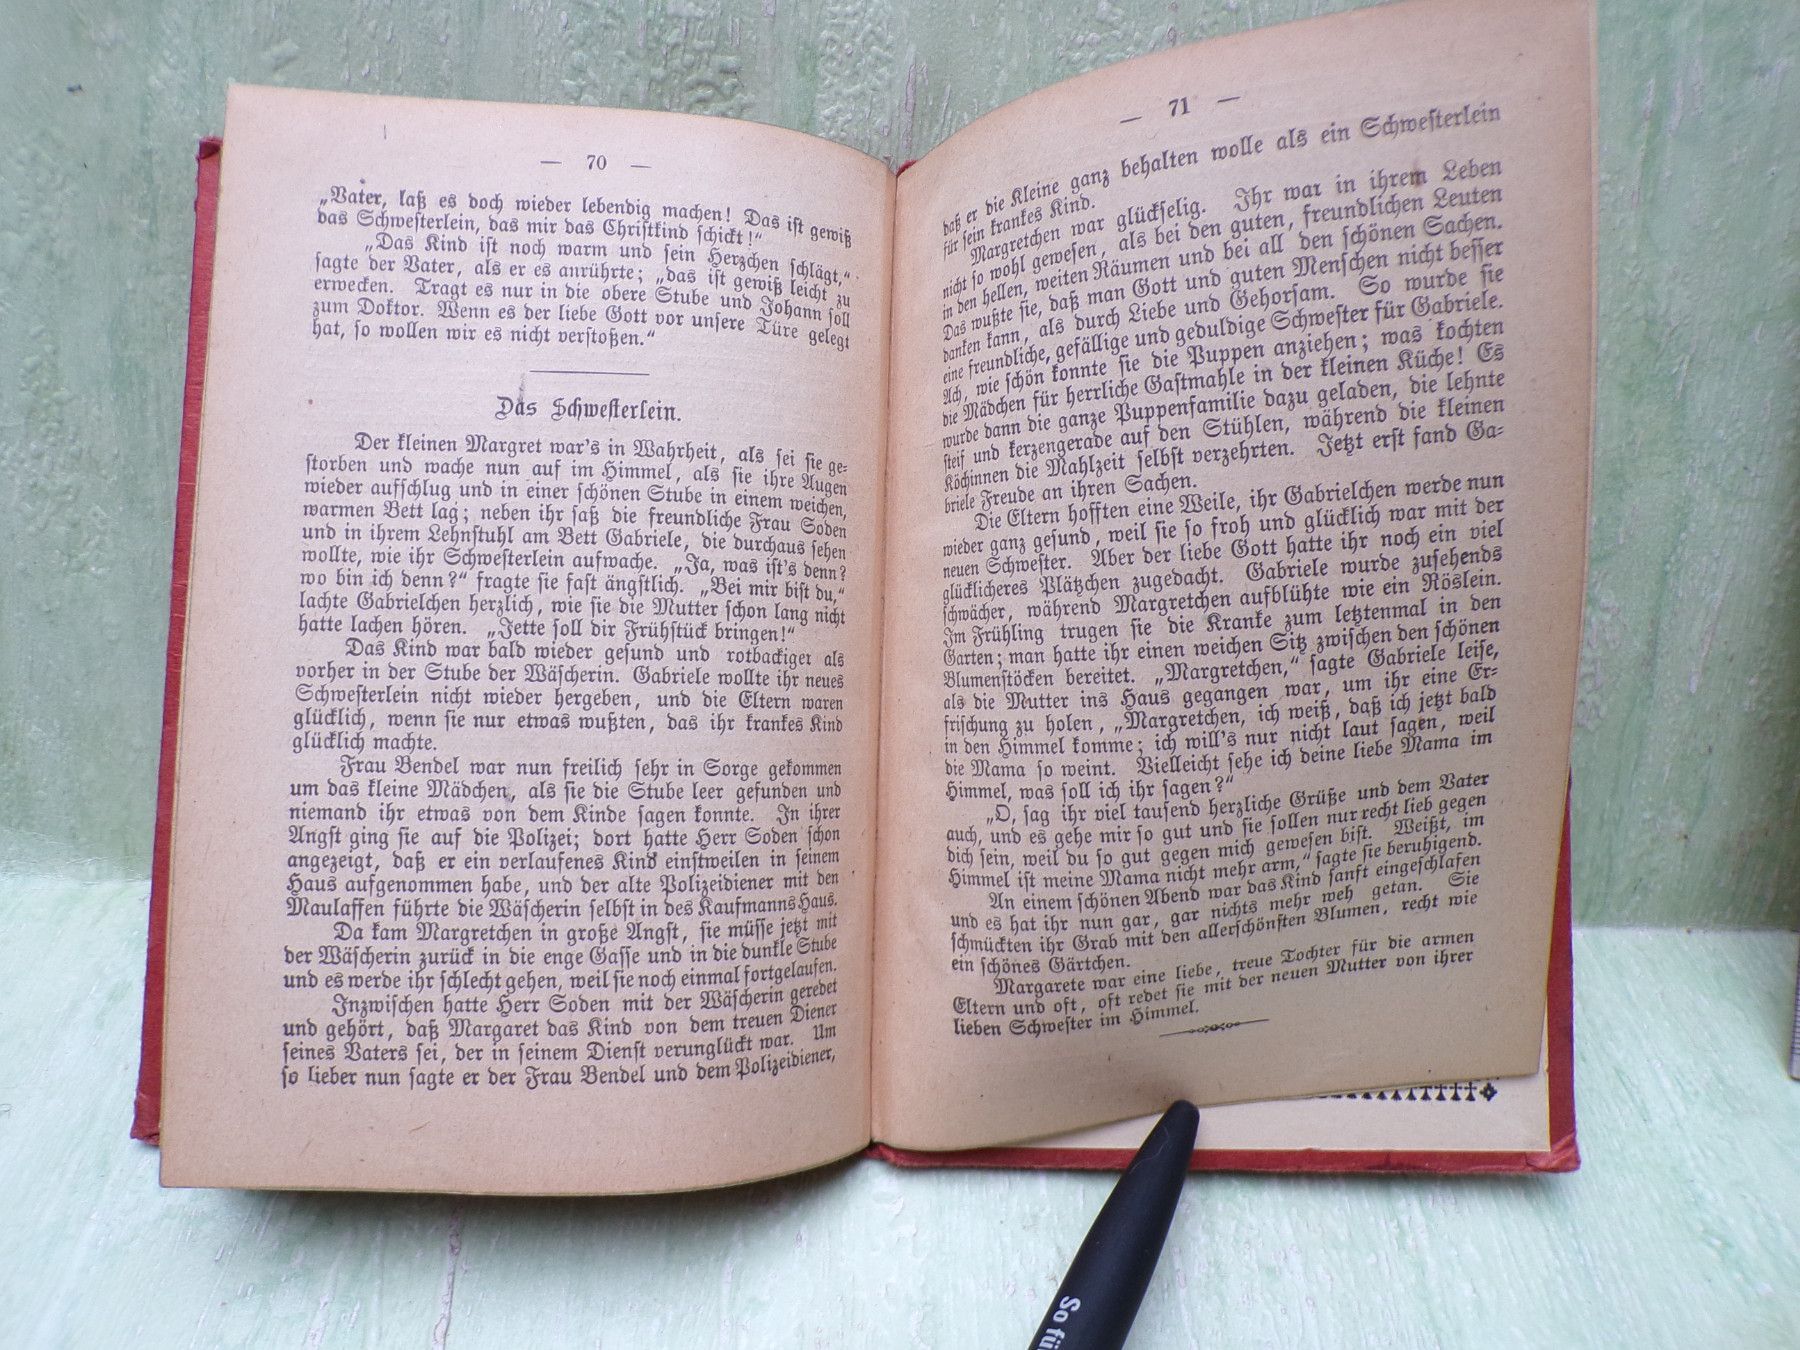 — 70 —
„Vater, laß es doch wieder lebendig machen! Das ist gewiß
das Schwesterlein, das mir das Christkind schickt!“
„Das Kind ist noch warm und sein Herzchen schlägt,“
sagte der Vater, als er es anrührte; „das ist gewiß leicht zu
erwecken. Tragt es nur in die obere Stube und Johann soll
zum Doktor. Wenn es der liebe Gott vor unsere Türe gelegt
hat, so wollen wir es nicht verstoßen.“
Das Schwesterlein.
Der kleinen Margret war's in Wahrheit, als sei sie ge-
storben und wache nun auf im Himmel, als sie ihre Augen
wieder aufschlug und in einer schönen Stube in einem weichen,
warmen Bett lag; neben ihr saß die freundliche Frau Soden
und in ihrem Lehnstuhl am Bett Gabriele, die durchaus sehen
wollte, wie ihr Schwesterlein aufwache. „Ja, was ist's denn?
wo bin ich denn?“ fragte sie fast ängstlich. „Bei mir bist du,“
lachte Gabrielchen herzlich, wie sie die Mutter schon lang nicht
hatte lachen hören. „Jette soll dir Frühstück bringen!“
Das Kind war bald wieder gesund und rotbackiger als
vorher in der Stube der Wäscherin. Gabriele wollte ihr neues
Schwesterlein nicht wieder hergeben, und die Eltern waren
glücklich, wenn sie nur etwas wußten, das ihr krankes Kind
glücklich machte.
Frau Bendel war nun freilich sehr in Sorge gekommen
um das kleine Mädchen, als sie die Stube leer gefunden und
niemand ihr etwas von dem Kinde sagen konnte. In ihrer
Angst ging sie auf die Polizei; dort hatte Herr Soden schon
angezeigt, daß er ein verlaufenes Kind einstweilen in seinem
Haus aufgenommen habe, und der alte Polizeidiener mit den
Maulaffen führte die Wäscherin selbst in des Kaufmanns Haus.
Da kam Margretchen in große Angst, sie müsse jetzt mit
der Wäscherin zurück in die enge Gasse und in die dunkle Stube
und es werde ihr schlecht gehen, weil sie noch einmal fortgelaufen.
Inzwischen hatte Herr Soden mit der Wäscherin geredet
und gehört, daß Margaret das Kind von dem treuen Diener
seines Vaters sei, der in seinem Dienst verunglückt war. Um
so lieber nun sagte er der Frau Bendel und dem Polizeidiener,
— 71 —
daß er die Kleine ganz behalten wolle als ein Schwesterlein
für sein krankes Kind.
Margretchen war glückselig. Ihr war in ihrem Leben
nicht so wohl gewesen, als bei den guten, freundlichen Leuten
in den hellen, weiten Räumen und bei all den schönen Sachen.
Das wußte sie, daß man Gott und guten Menschen nicht besser
danken kann, als durch Liebe und Gehorsam. So wurde sie
eine freundliche, gefällige und geduldige Schwester für Gabriele.
Ach, wie schön konnte sie die Puppen anziehen; was kochten
die Mädchen für herrliche Gastmahle in der kleinen Küche! Es
wurde dann die ganze Puppenfamilie dazu geladen, die lehnte
steif und kerzengerade auf den Stühlen, während die kleinen
Köchinnen die Mahlzeit selbst verzehrten. Jetzt erst fand Ga-
briele Freude an ihren Sachen.
Die Eltern hofften eine Weile, ihr Gabrielchen werde nun
wieder ganz gesund, weil sie so froh und glücklich war mit der
neuen Schwester. Aber der liebe Gott hatte ihr noch ein viel
glücklicheres Plätzchen zugedacht. Gabriele wurde zusehends
schwächer, während Margretchen aufblühte wie ein Röslein.
Im Frühling trugen sie die Kranke zum letztenmal in den
Garten; man hatte ihr einen weichen Sitz zwischen den schönen
Blumenstöcken bereitet. „Margretchen,“ sagte Gabriele leise,
als die Mutter ins Haus gegangen war, um ihr eine Er-
frischung zu holen, „Margretchen, ich weiß, daß ich jetzt bald
in den Himmel komme; ich will's nur nicht laut sagen, weil
die Mama so weint. Vielleicht sehe ich deine liebe Mama im
Himmel, was soll ich ihr sagen?“
„O, sag ihr viel tausend herzliche Grüße und dem Vater
auch, und es gehe mir so gut und sie sollen nur recht lieb gegen
dich sein, weil du so gut gegen mich gewesen bist. Weißt, im
Himmel ist meine Mama nicht mehr arm,“ sagte sie beruhigend.
An einem schönen Abend war das Kind sanft eingeschlafen
und es hat ihr nun gar, gar nichts mehr weh getan. Sie
schmückten ihr Grab mit den allerschönsten Blumen, recht wie
ein schönes Gärtchen.
Margarete war eine liebe, treue Tochter für die armen
Eltern und oft, oft redet sie mit der neuen Mutter von ihrer
lieben Schwester im Himmel.
So fü